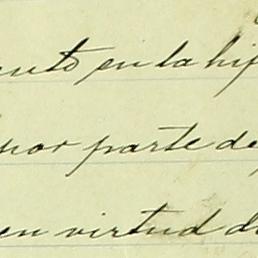 en la hi
por parte de
en virtud d